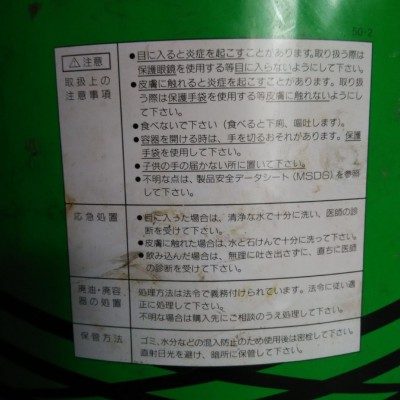 SG-2
⚠注意
取扱上の
注意事項
●目に入ると炎症を起こすことがあります。取り扱う際は
保護眼鏡を使用する等目に入らないようにして下さい。
●皮膚に触れると炎症を起こすことがあります。取り扱
う際は保護手袋を使用する等皮膚に触れないようにし
て下さい。
●食べないで下さい(食べると下痢、嘔吐します)。
●容器を開ける時は、手を切るおそれがあります。保護
手袋を使用して下さい。
●子供の手の届かない所に置いて下さい。
●不明な点は、製品安全データシート(MSDS)を参照
して下さい。
応急処置
●目に入った場合は、清浄な水で十分に洗い、医師の診
断を受けて下さい。
●皮膚に触れた場合は、水と石けんで十分に洗って下さい。
●飲み込んだ場合は、無理に吐き出さずに、直ちに医師
の診断を受けて下さい。
廃油・廃容
器の処置
処理方法は法令で義務付けられています。法令に従い適
正に処理して下さい。
不明な場合は購入先にご相談のうえ処理して下さい。
保管方法
ゴミ、水分などの混入防止のため使用後は密栓して下さい。
直射日光を避け、暗所に保管して下さい。